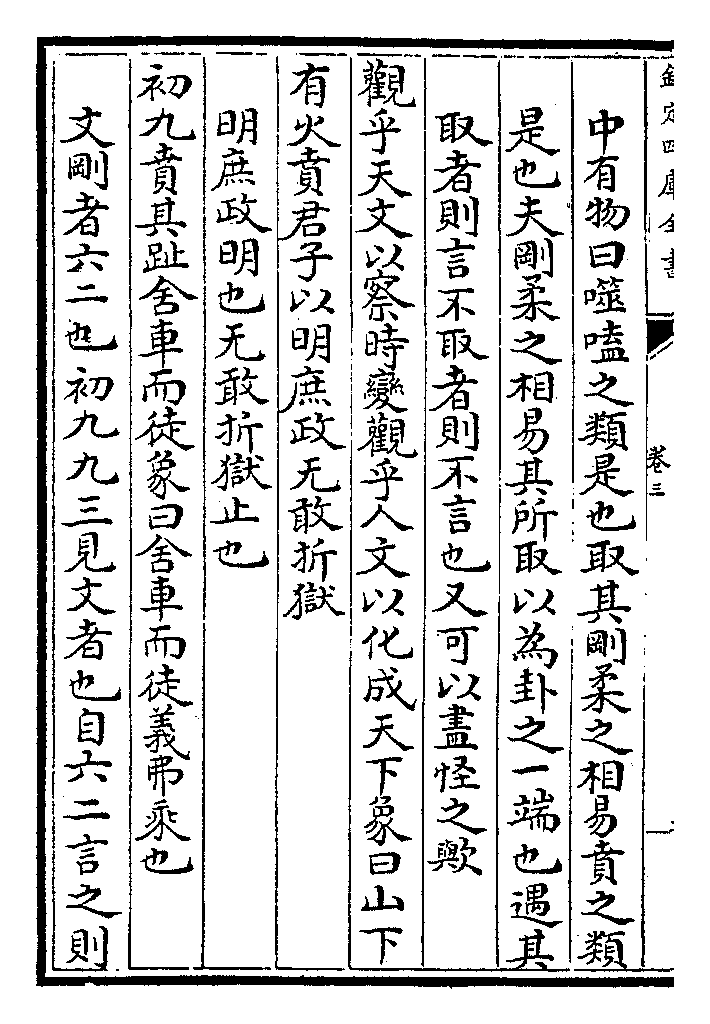 欽定四庫全書
卷三
中有物曰噬嗑之類是也取其剛柔之相易賁之類
是也夫剛柔之相易其所取以為卦之一端也遇其
取者則言不取者則不言也又可以盡怪之歟
觀乎天文以察時變觀乎人文以化成天下象曰山下
有火賁君子以明庶政无敢折獄
明庶政明也无敢折獄止也
初九賁其趾舍車而徒象曰舍車而徒義弗乘也
文剛者六二也初九九三見文者也自六二言之則